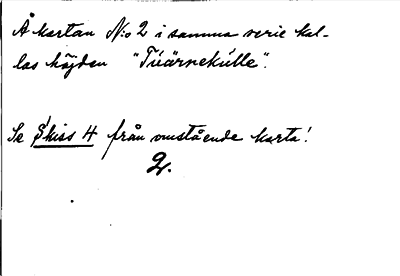 Å kartan N:o 2 i samma serie kal-
las höjden "Túärnekúlle".
Se Skiss 4 från omstående karta!
2.